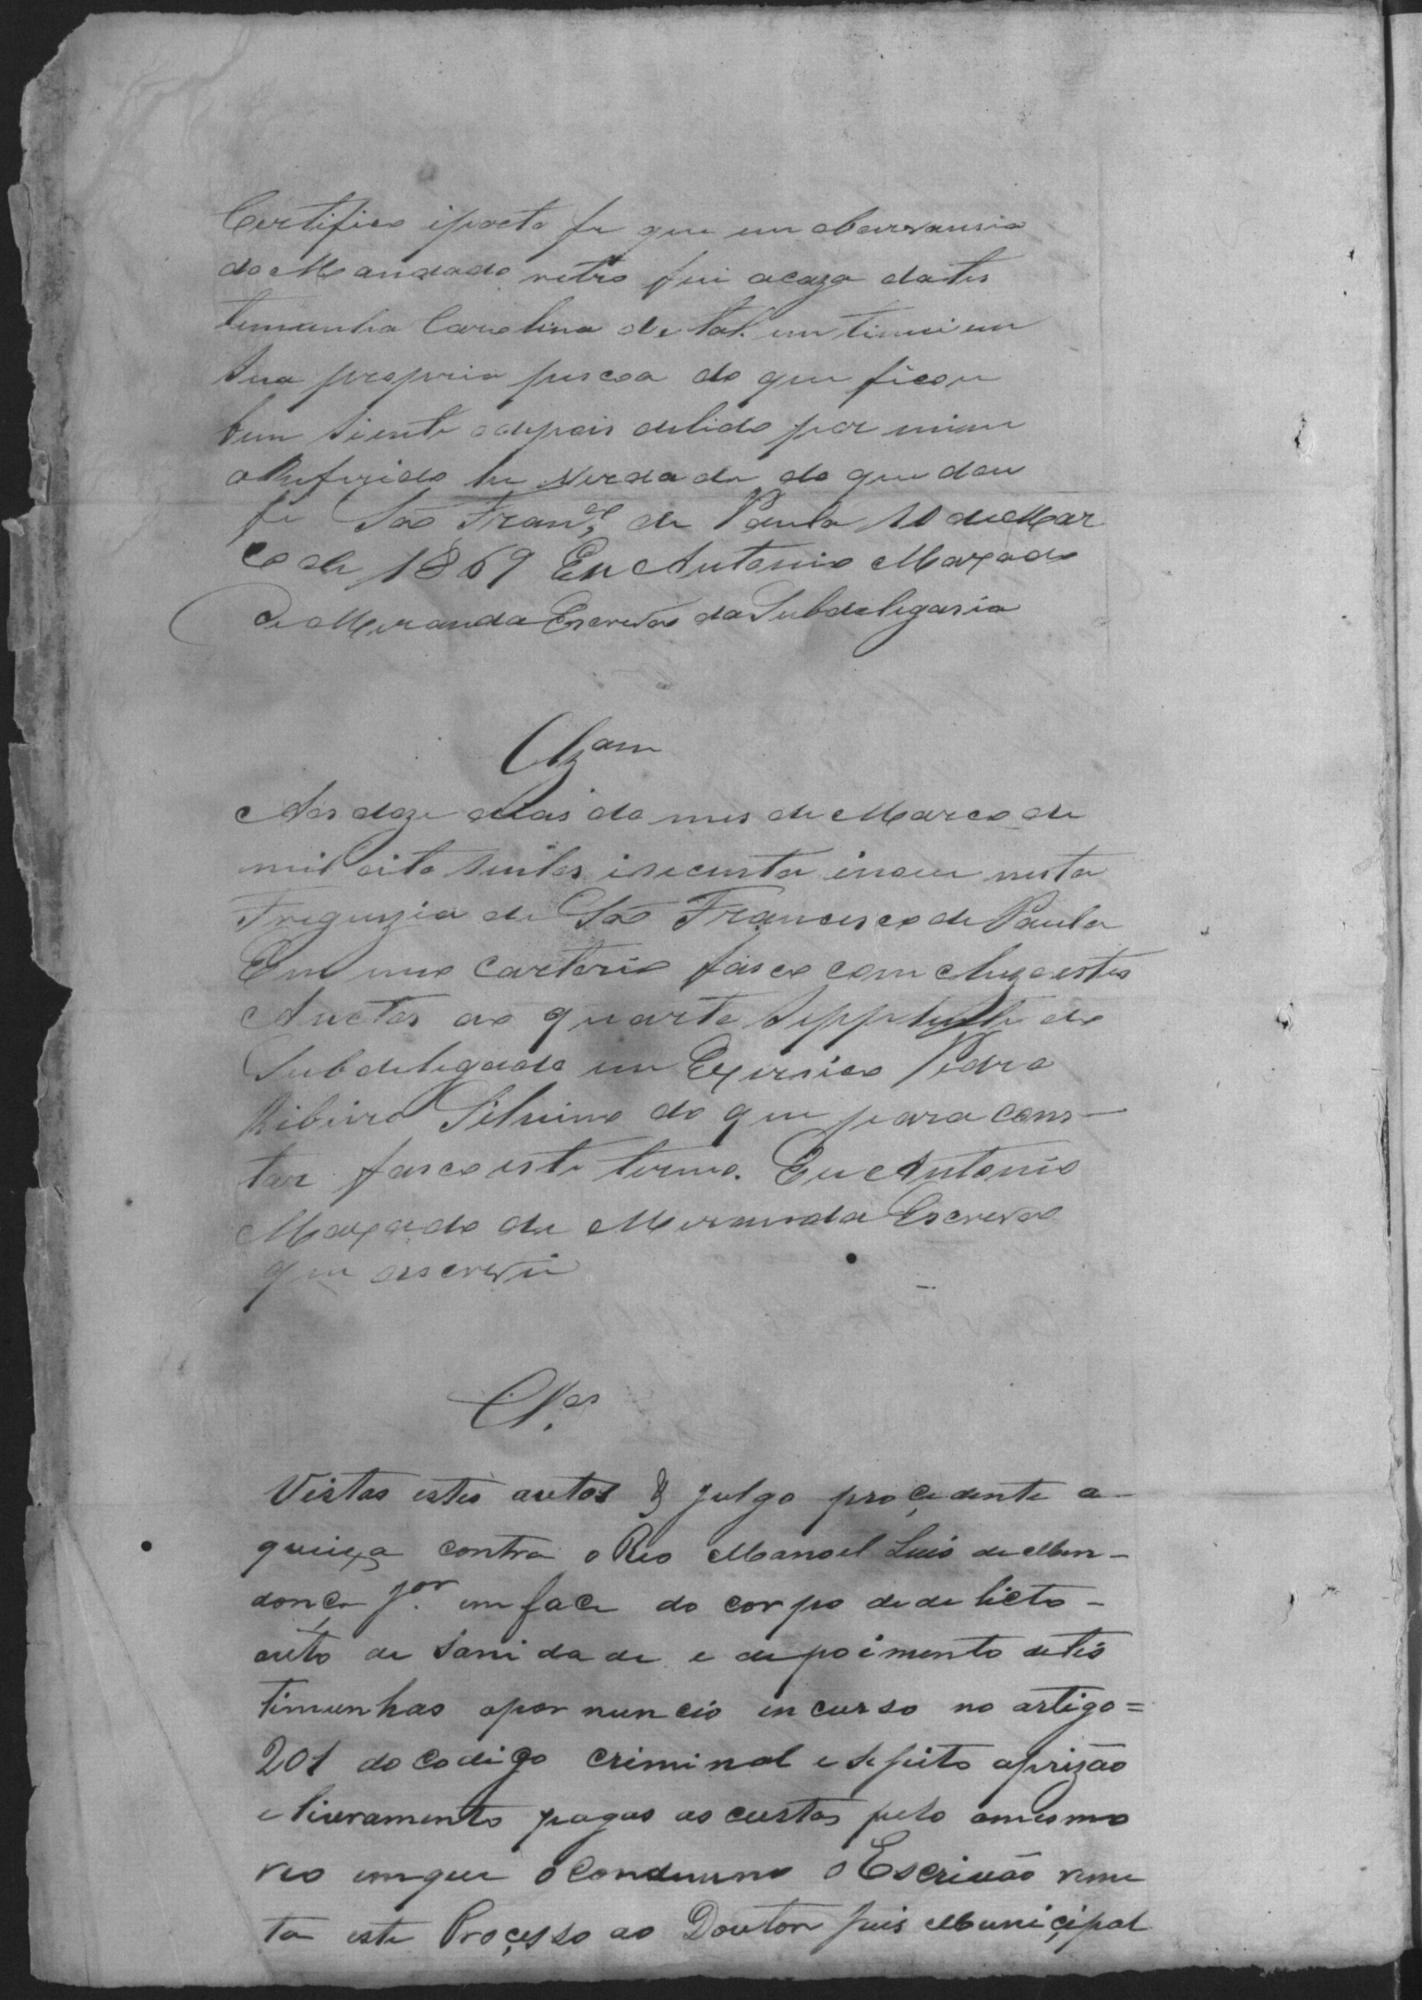 Certifico iporto fe que em obeservansia
do Mandado retro fui acaza dates
temunha Carolina de tal. em timei em
sua propria pescoa do que ficou
bem siente e depois delido por mim
o Referido he verdade do que dou
fe São Fran.co de Paula 10 de Mar
co de 1869 Eu Antonio Maxado
de Meranda Escrevão da Subdelegasia
Clzam
Aos doze dias do mes de Marco de
mil oito sentos isecenta inove nesta
Freguzia de São Francisco de Paula
Em meo Cartorio fasco com cluzo estes
Auctos ao quarto Sepplente do
Subdelegado em Exersico Pedro
Ribeiro Silveino do que para cons-
tar fasco este termo. Eu Antonio
Maxado de Meranda Escrevão
que escrevi
Cl.os
Vistos estes autos & julgo proçedente a-
queixa contra o Reo Manoel Luis de Men-
donça J.or em face do corpo de de licto-
auto de Sanidade e depoimento detes
timunhas opor nuncio in curso no artigo=
201 do codigo criminal e sogeito aprizão
e livramento pagas as custas pelo omesmo
reo emque o Condeumno o Escrivão reme
ta este Proçesso ao Doutor Juis Muniçipal